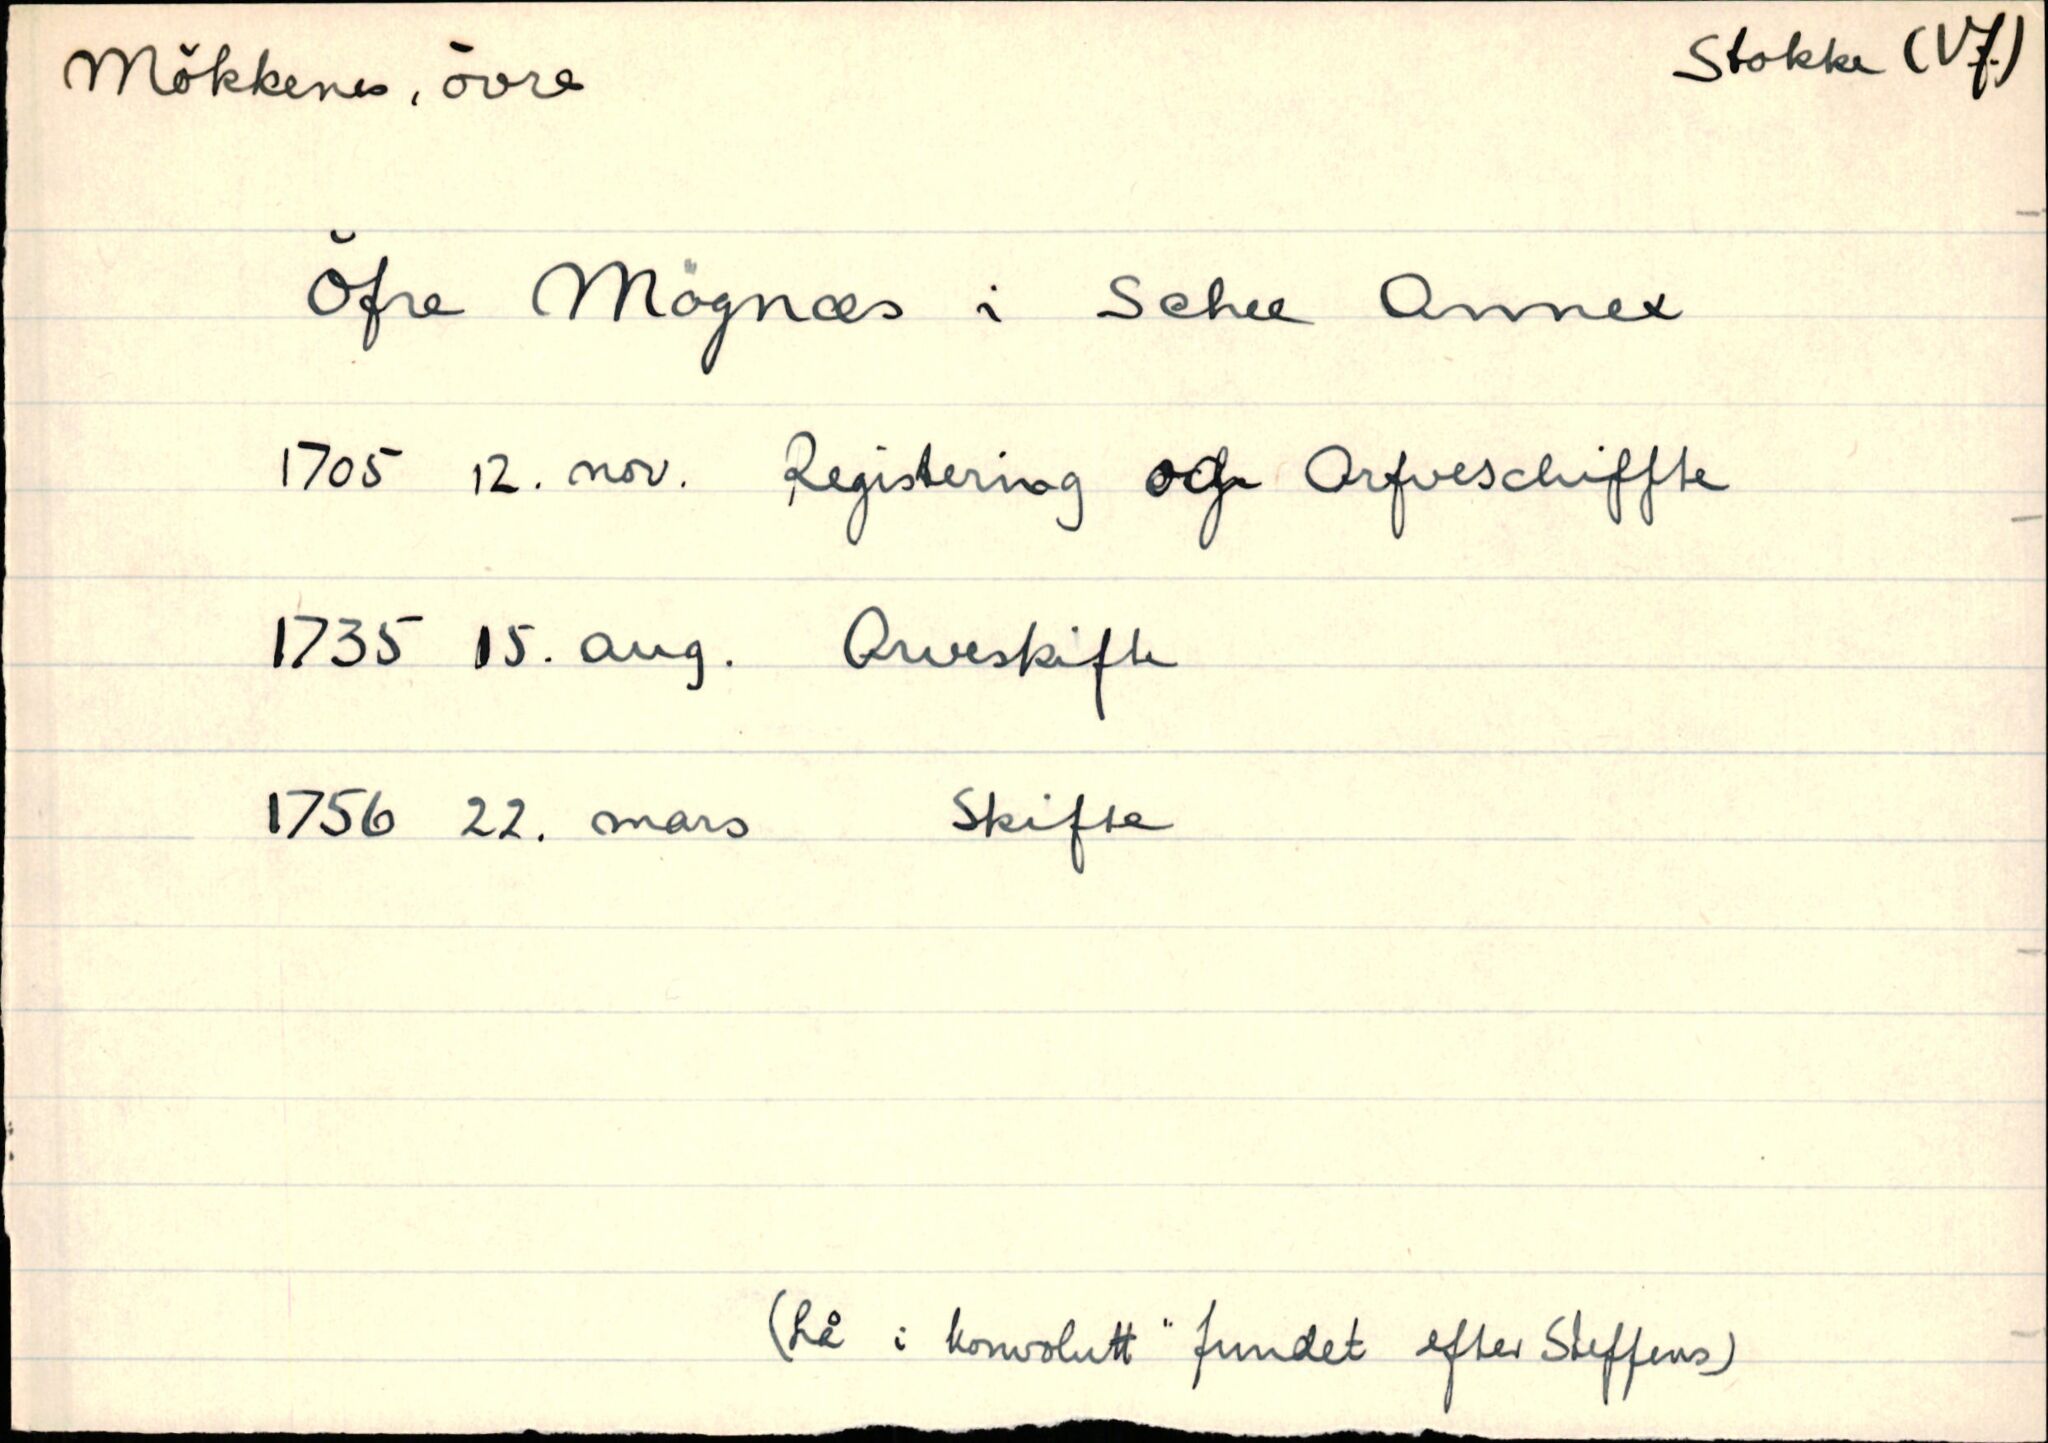 Mökkenes, övre
Stokke (Vf.)
Öfre Mögnæs i Schee Annex
1705 12. nov. Registering och Arfveschiffte
1735 15. aug. Arveskifte
1756 22. mars Skifte
(Lå i konvolutt "fundet efter Steffens)